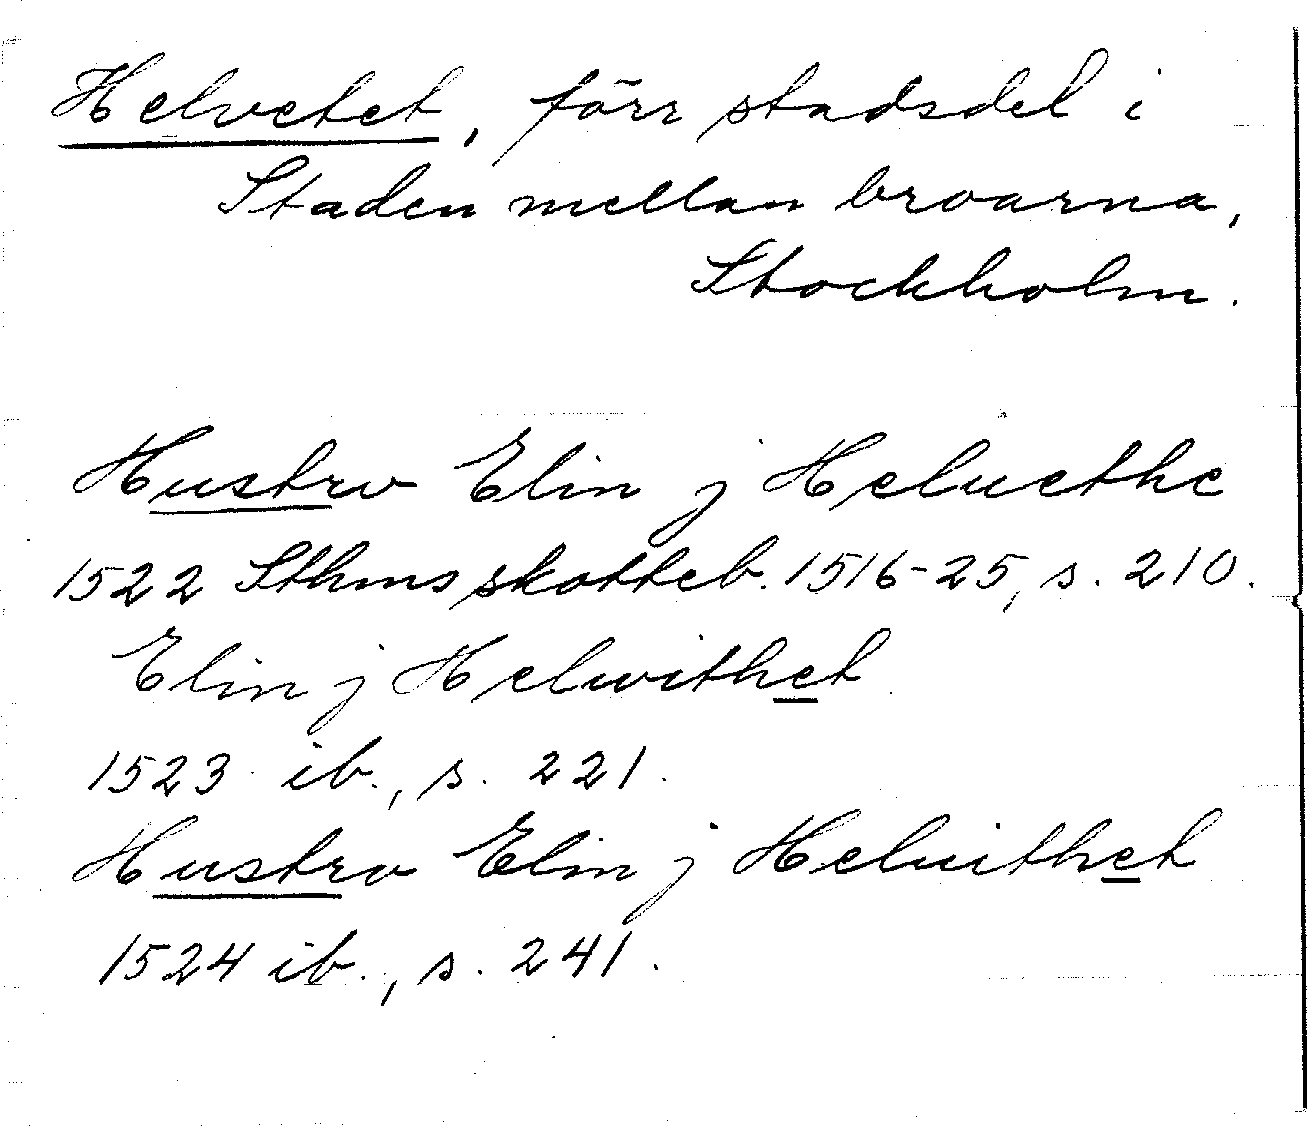 Helvetet, förr stadsdel i
Staden mellan broarna,
Stockholm.
Hustro Elin j Heluethe
1522 Sthms skotteb. 1516-25, s. 210.
Elin j Helwithet
1523 ib., s. 221.
Hustro Elin j Heluithet
1524 ib., s. 241.